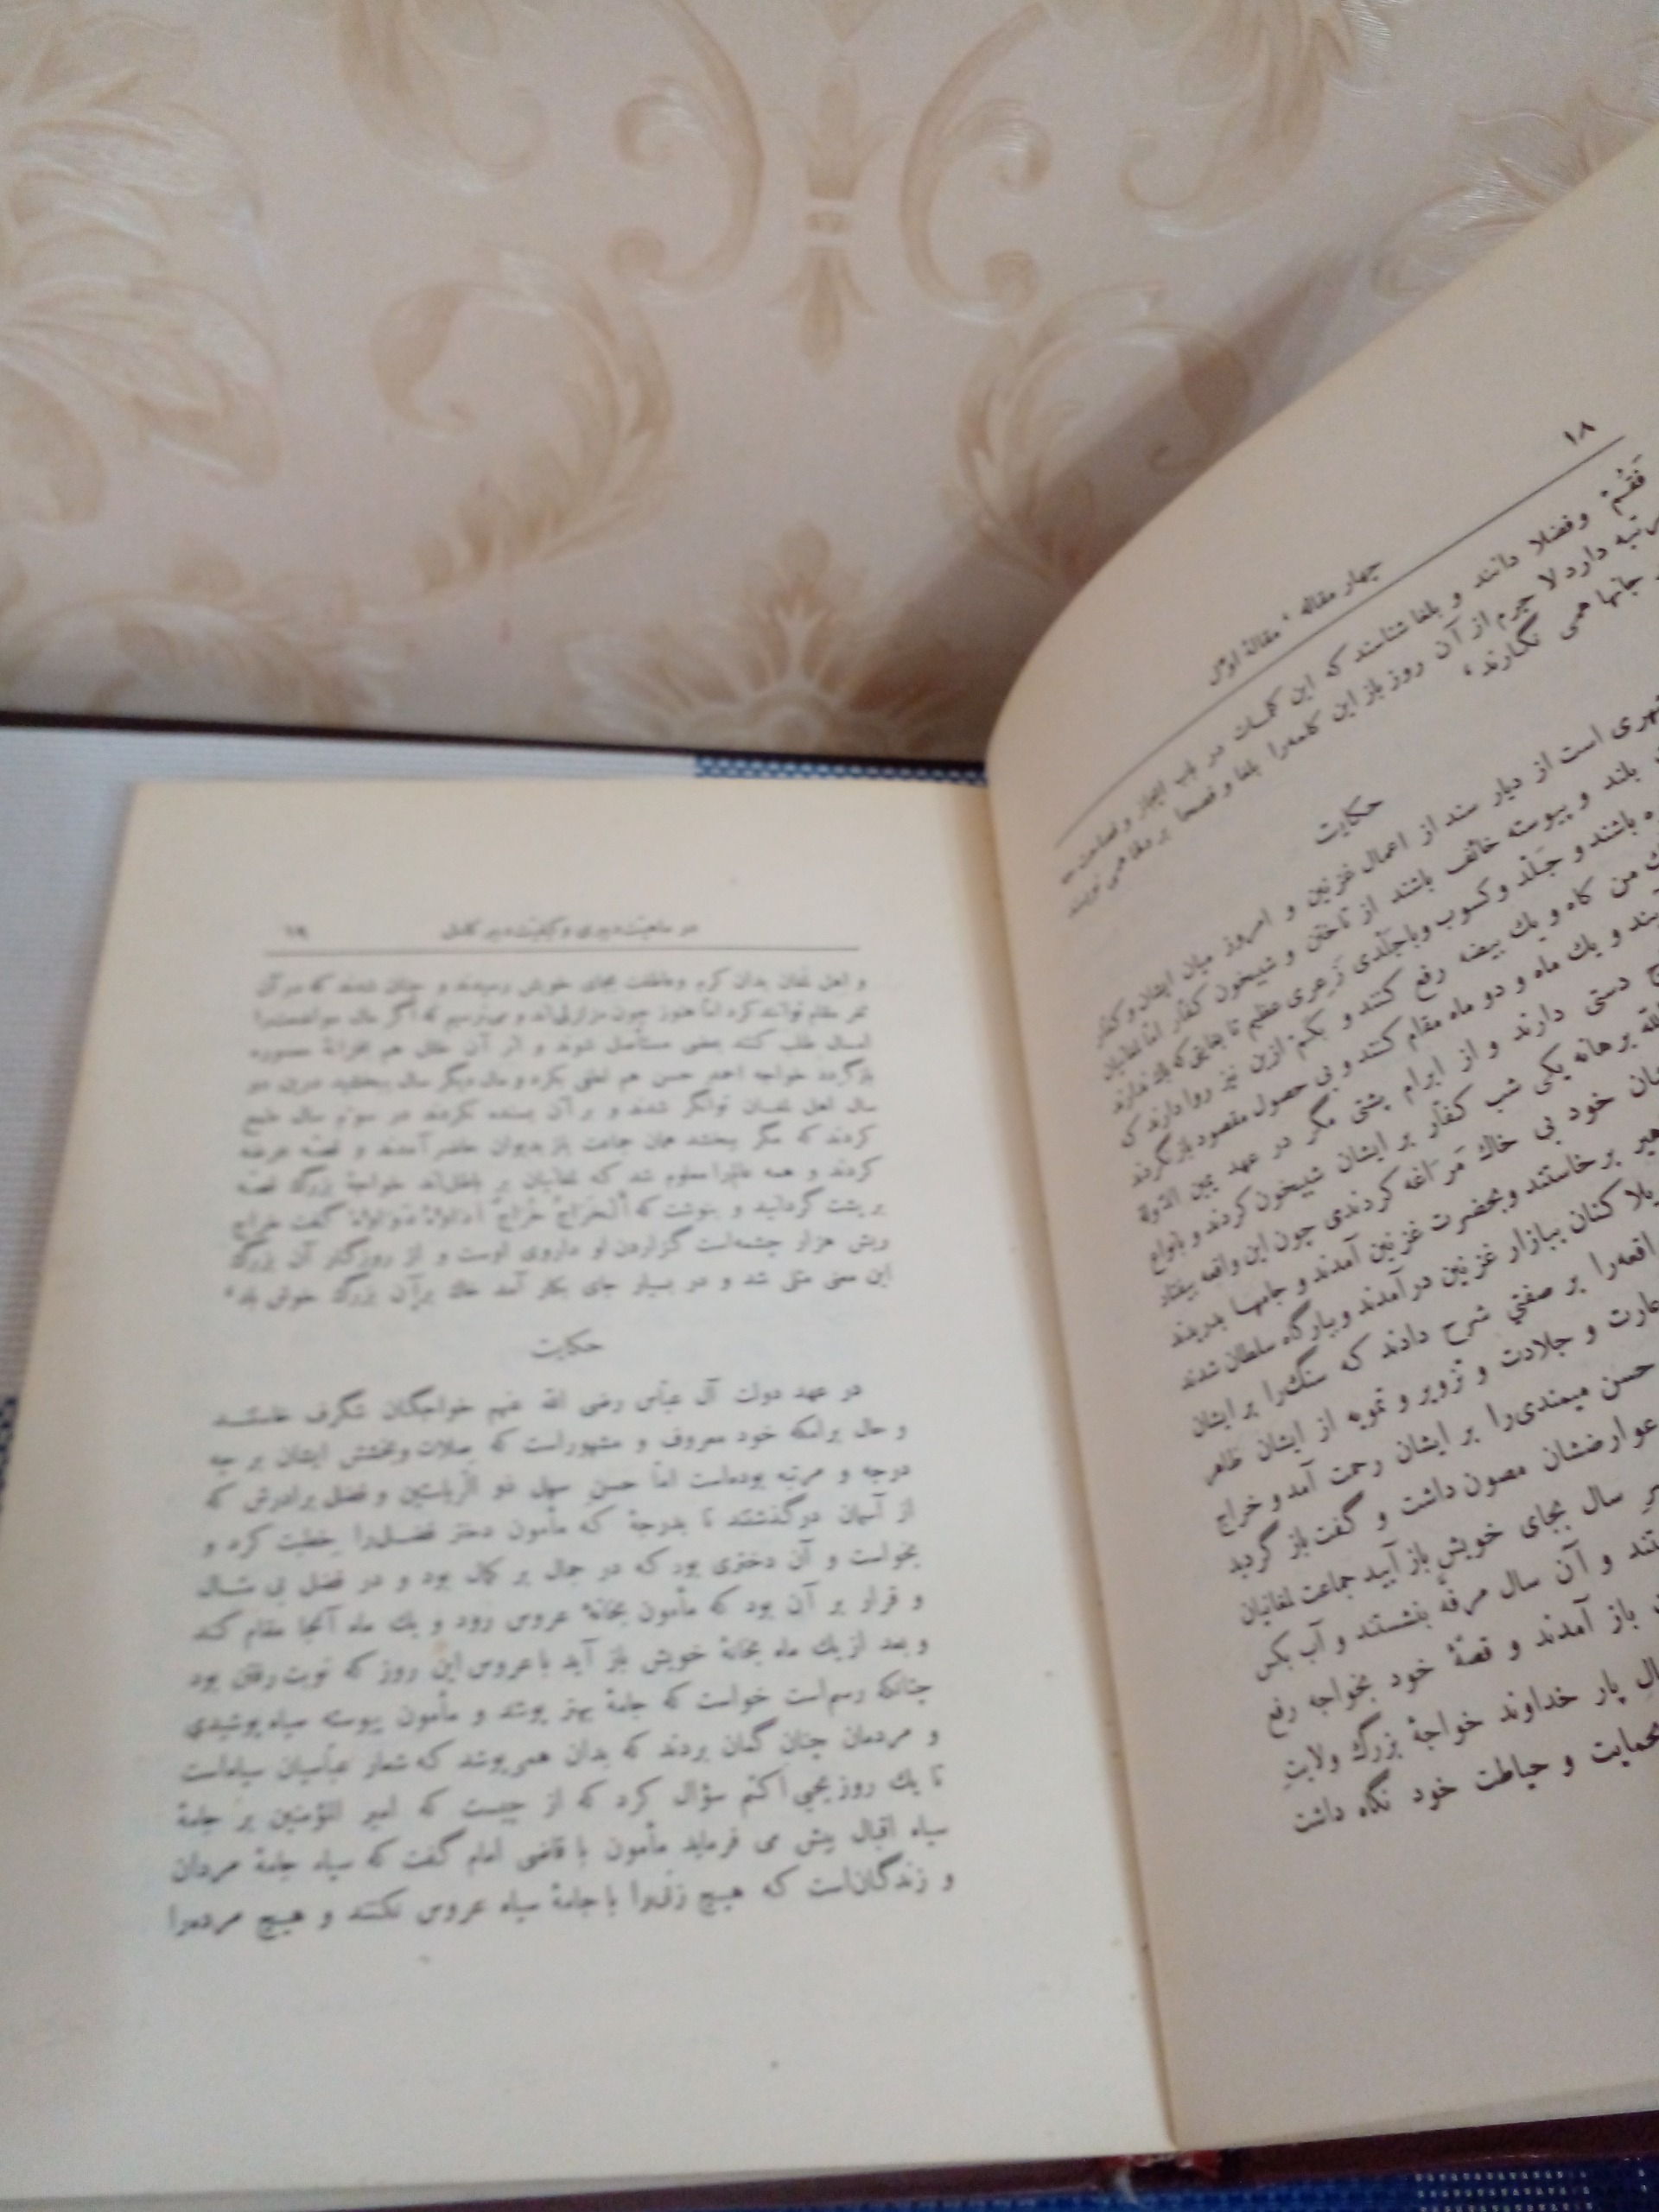 ۱۸
چهار مقاله ، مقالهٔ اوّل
فَقُمْ وفضلا دانند و بلغا شناسند که این کلمات در باب ایجاز و فصاحت
تبه دارد لا جرم از آن روز باز این کلمه‌را بلغا و فصحا بر دلها می نویسند
جانها همی نگارند،
حکایت
شهری است از دیار سند از اعمال غزنین و امروز میان ایشان و کفّار
بلند و پیوسته خائف باشند از تاختن و شبیخون کفّار امّا لمغانیان
باشند و جَلْد و کسوب و باجلدی زَعِری عظیم تا بغایتی که باك ندارند
من کاه و یك بیضه رفع کنند و بکم ازین نیز روا دارند که
و یك ماه و دو ماه مقام کنند و بی حصول مقصود باز نگردند
دستی دارند و از ابرام پشتی مگر در عهد یمین الدولة
الله برهانه یکی شب کفّار بر ایشان شبیخون کردند و بانواع
خود بی خاك مَراغه کردندی چون این واقعه بیفتاد
برخاستند و بحضرت غزنین آمدند و جامها بدریدند
کنان ببازار غزنین درآمدند و ببارگاه سلطان شدند
بر صفتی شرح دادند که سنگ‌را بر ایشان
و جلادت و تزویر و تمویه از ایشان ظاهر
حسن میمندی‌را بر ایشان رحمت آمد و خراج
عوارضشان مصون داشت و گفت باز گردید
سال بجای خویش باز آیید جماعت لمغانیان
و آن سال مرفّه بنشستند و آب بکس
باز آمدند و قصّهٔ خود بخواجه رفع
پار خداوند خواجهٔ بزرگ ولایتِ
بحمایت و حیاطت خود نگاه داشت
در ماهیّت دبیری و کیفیّت دبیر کامل
۱۹
و اهل لمغان بدان کرم و عاطفت بجای خویش رسیدند و چنان شدند که در آن
ثغر مقام توانند کرد امّا هنوز چون مزلزلی‌اند و می‌ترسیم که اگر مال مواضعت‌را
امسال طلب کنند بعضی مستأصل شوند و اثر آن خلل هم بخزانهٔ معموره
باز گردد خواجه احمد حسن هم لطفی بکرد و مال دیگر سال ببخشید درین دو
سال اهل لمغان توانگر شدند و بر آن بسنده نکردند در سوّم سال طمع
کردند که مگر ببخشد همان جماعت باز بدیوان حاضر آمدند و قصّه عرضه
کردند و همه عالم‌را معلوم شد که لمغانیان بر باطل‌اند خواجهٔ بزرگ قصّه
بر پشت گردانید و بنوشت که اَلْخَراجُ خُراجٌ اَداؤُهُ دَواؤُهُ گفت خراج
ریش هزار چشمه‌است گزاردن او داروی اوست و از روزگار آن بزرگ
این معنی مثلی شد و در بسیار جای بکار آمد خاك بر آن بزرگ خوش باد،
حکایت
در عهد دولت آل عبّاس رضی الله عنهم خواجگان شگرف خاستند
و حال برامکه خود معروف و مشهوراست که صِلات و بخشش ایشان بر چه
درجه و مرتبه بوده‌است امّا حسنِ سهل ذو الرّیاستین و فضل برادرش که
از آسمان درگذشتند تا بدرجهٔ که مأمون دختر فضل‌را خِطبت کرد و
بخواست و آن دختری بود که در جمال بر کمال بود و در فضل بی مثال
و قرار بر آن بود که مأمون بخانهٔ عروس رود و یك ماه آنجا مقام کند
و بعد از یك ماه بخانهٔ خویش باز آید با عروس این روز که نوبت رفتن بود
چنانکه رسم‌است خواست که جامهٔ بهتر پوشد و مأمون پیوسته سیاه پوشیدی
و مردمان چنان گمان بردند که بدان همی‌پوشد که شعار عبّاسیان سیاه‌است
تا یك روز یحیی اَکثم سؤال کرد که از چیست که امیر المؤمنین بر جامهٔ
سیاه اقبال بیش می فرماید مأمون با قاضی امام گفت که سیاه جامهٔ مردان
و زندگان‌است که هیچ زنی‌را با جامهٔ سیاه عروس نکنند و هیچ مرده‌را